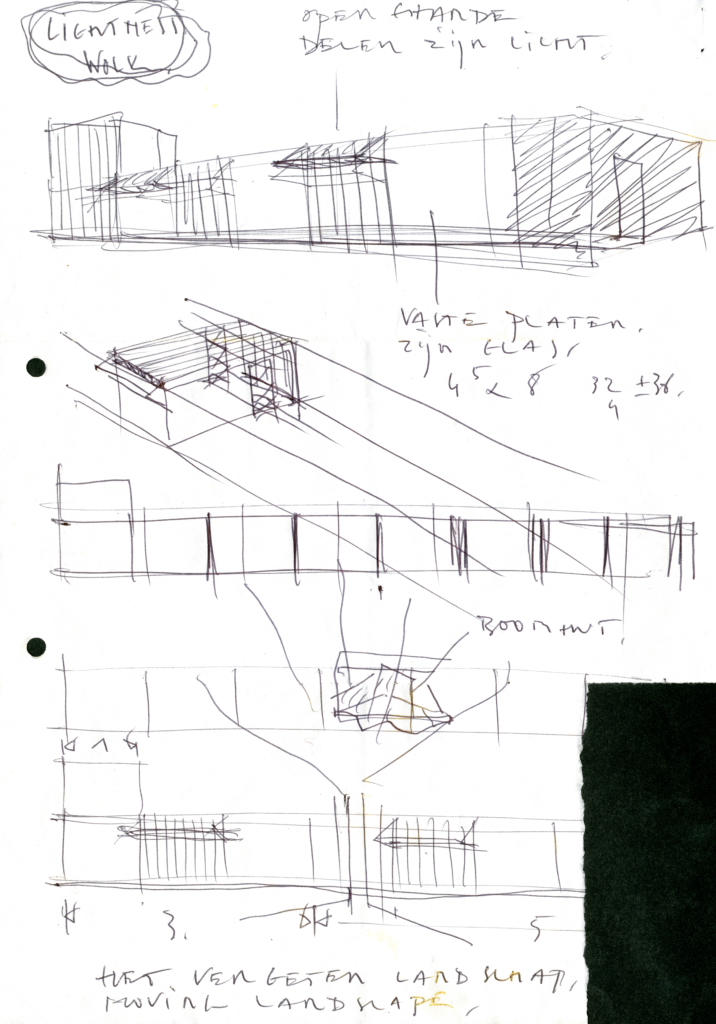 LICHTMEST
WOLK.
OPEN STAANDE
DELEN ZIJN LICHT.
VASTE PLATEN.
ZIJN GLAS,
4 5 x 8 32 ±36.
4
BOOMHUT.
1
3. 5
HET VERGETEN LANDSCHAP,
MOVING LANDSCAPE,